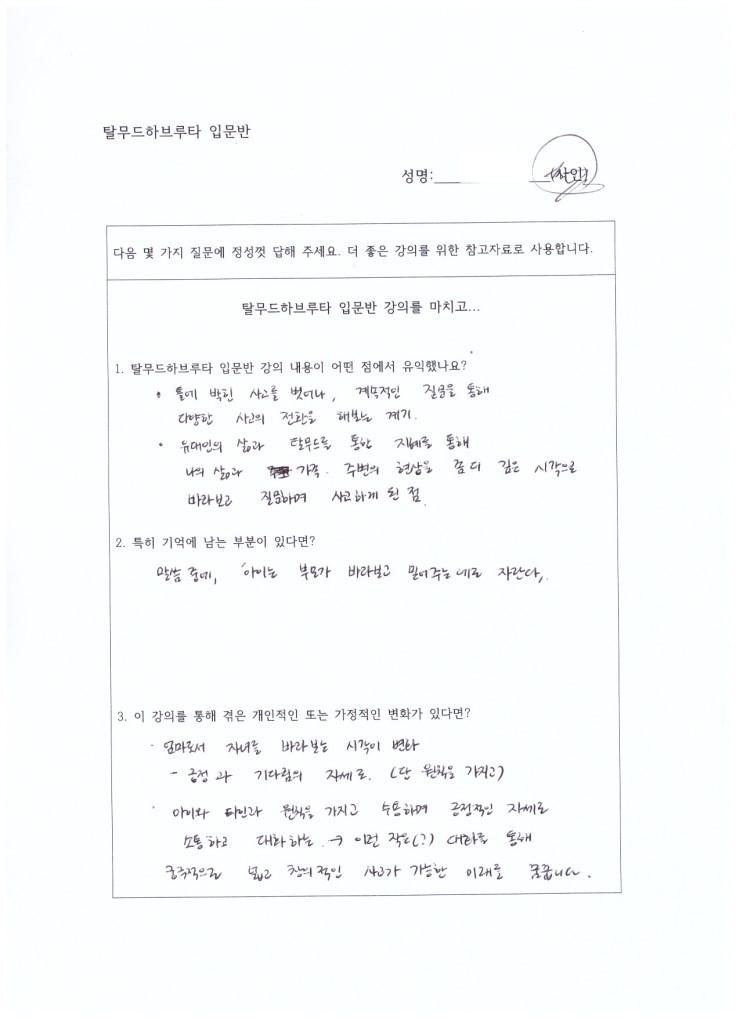 탈무드하브루타 입문반
성명: (사인)
다음 몇 가지 질문에 정성껏 답해 주세요. 더 좋은 강의를 위한 참고자료로 사용합니다.
탈무드하브루타 입문반 강의를 마치고...
1. 탈무드하브루타 입문반 강의 내용이 어떤 점에서 유익했나요?
• 틀에 박힌 사고를 벗어나, 계속적인 질문을 통해
다양한 사고의 전환을 해보는 계기.
• 유대인의 삶과 탈무드를 통한 지혜를 통해
나의 삶과 가족. 주변의 현상을 좀 더 깊은 시각으로
바라보고 질문하며 사고하게 된 점.
2. 특히 기억에 남는 부분이 있다면?
말씀 중에, 아이는 부모가 바라보고 믿어주는 데로 자란다,.
3. 이 강의를 통해 겪은 개인적인 또는 가정적인 변화가 있다면?
· 엄마로서 자녀를 바라보는 시각이 변화
- 긍정과 기다림의 자세로. (단 원칙을 가지고)
· 아이와 타인과 원칙을 가지고 수용하며 긍정적인 자세로
소통하고 대화하는. → 이런 작은(?) 대화를 통해
궁극적으로 넓고 창의적인 사고가 가능한 미래를 꿈꿉니다.